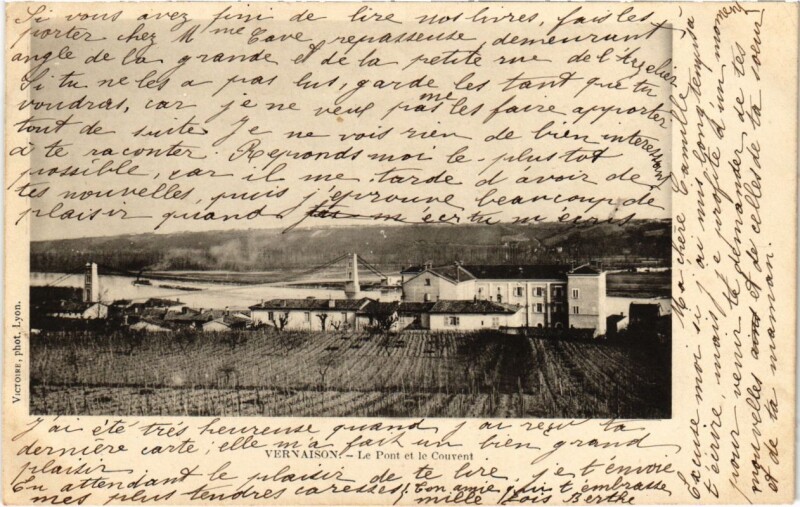 Ma chère Camille
Excuse moi si j'ai mis longtemps à
t'écrire, mais je profite d'un moment
pour venir te demander de tes
nouvelles and et de celles de ta soeur
et de ta maman.
Si vous avez fini de lire nos livres, fais les
porter chez Mme Cave repasseuse demeurant
angle de la grande et de la petite rue de l'Argelier
Si tu ne les a pas lus, garde les tant que tu
voudras, car je ne veux pas me les faire apporter
tout de suite. Je ne vois rien de bien interessant
à te raconter. Reponds moi le plus tot
possible, car il me tarde d'avoir de
tes nouvelles, puis j'éprouve beaucoup de
plaisir quand tu m'écris
J'ai été très heureuse quand j'ai reçu ta
dernière carte; elle m'a fait un bien grand
plaisir
En attendant le plaisir de te lire, je t'envoie
mes plus tendres caresses. Ton amie qui t'embrasse
mille fois Berthe
VERNAISON. – Le Pont et le Couvent
VICTOIRE, phot. Lyon.